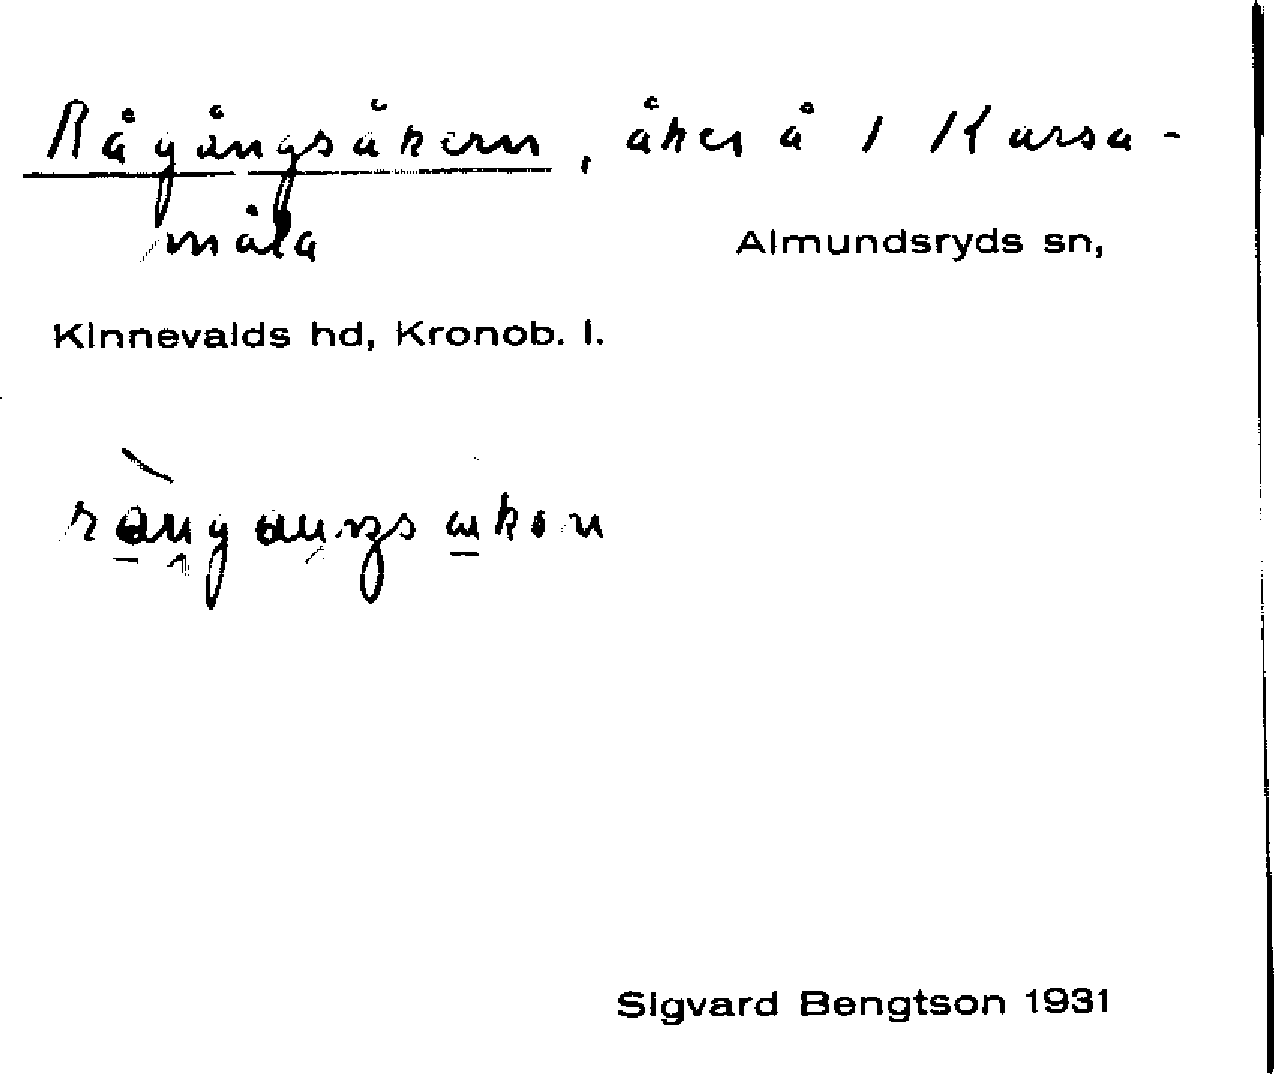 Rågångsåkern, åker å 1 Kursa-
måla
Almundsryds sn,
Kinnevalds hd, Kronob. l.
Sigvard Bengtson 1931